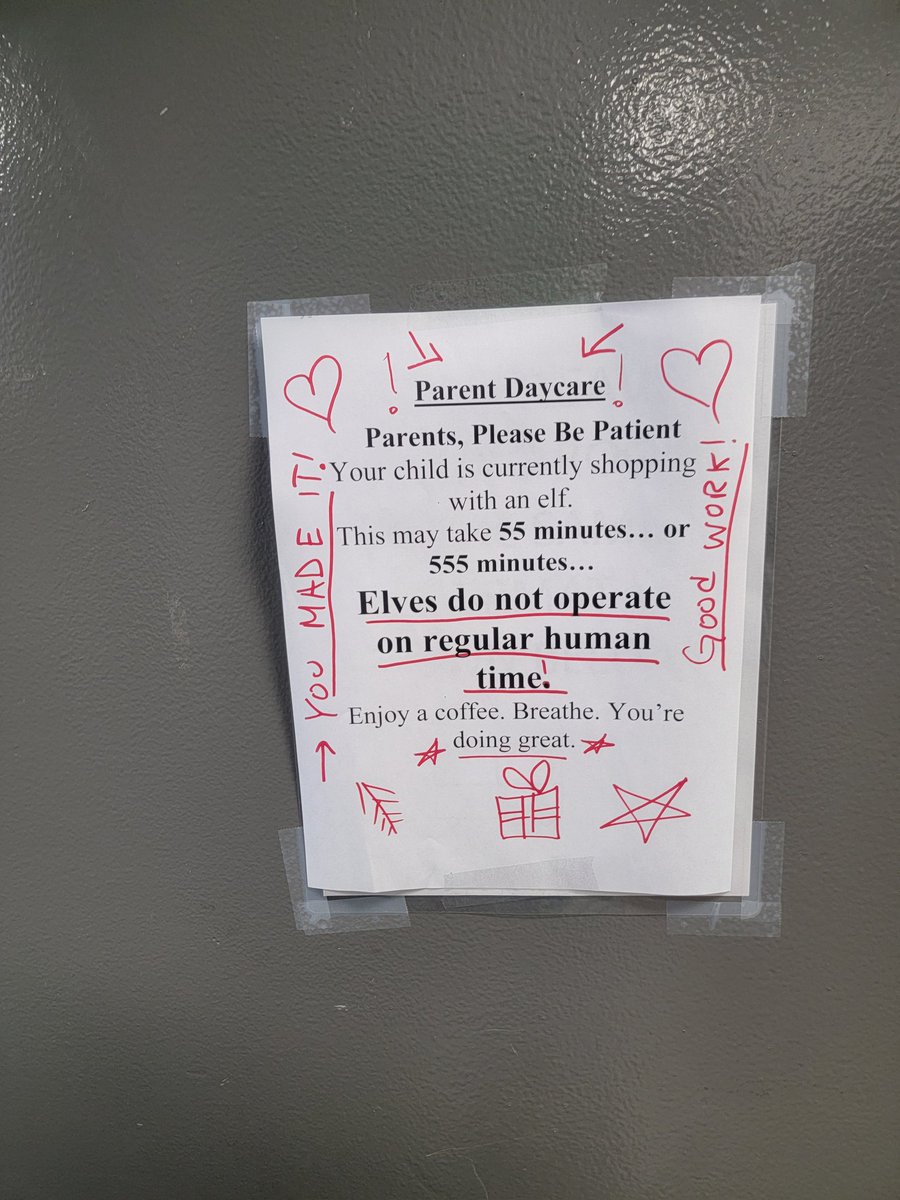 ! Parent Daycare !
Parents, Please Be Patient
Your child is currently shopping
with an elf.
This may take 55 minutes... or
555 minutes...
Elves do not operate
on regular human
time!
Enjoy a coffee. Breathe. You're
doing great.
YOU MADE IT!
GOOD WORK!